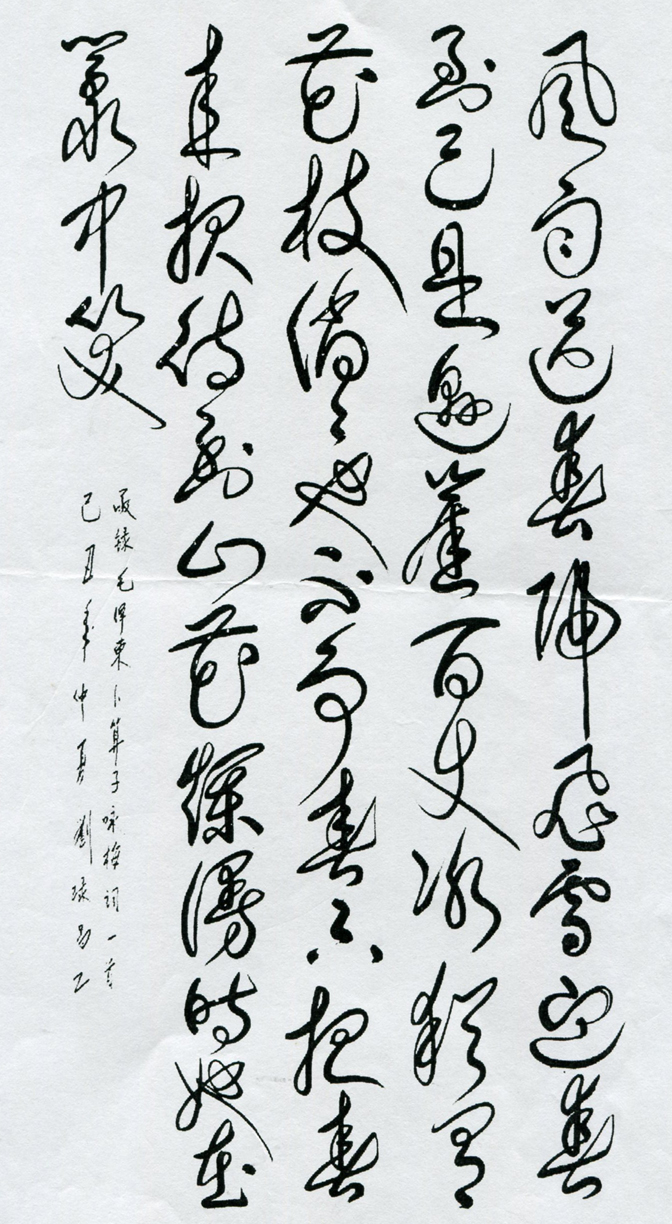 風雨送春歸飛雪迎春
到已是懸崖百丈冰猶有
花枝俏〻也不爭春只把春
來報待到山花爛漫時她在
叢中笑
錄毛澤東卜算子咏梅詞一首
己丑年仲夏劉